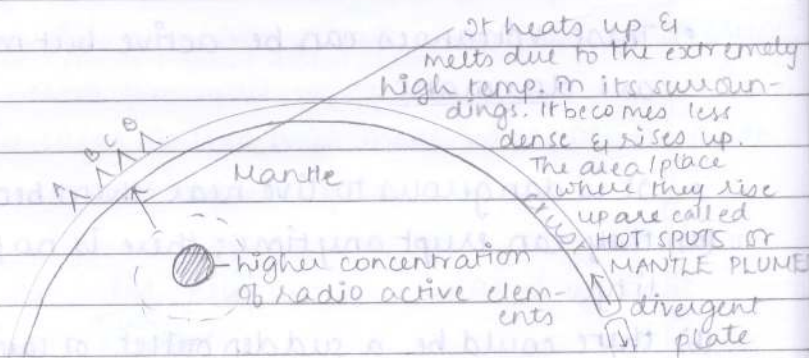 It heats up &
melts due to the extremely
high temp. in its surroun-
dings. It becomes less
dense & rises up.
The area/place
where they rise
up are called
HOT SPOTS or
MANTLE PLUME
A B C D
Mantle
crust
higher concentration
of radio active elem-
ents
divergent
plate